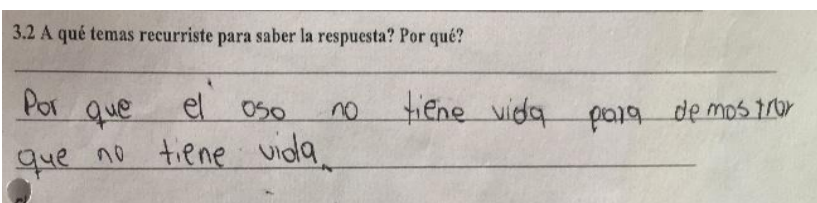 3.2 A qué temas recurriste para saber la respuesta? Por qué?
Por que el oso no tiene vida para demostrar
que no tiene vida.